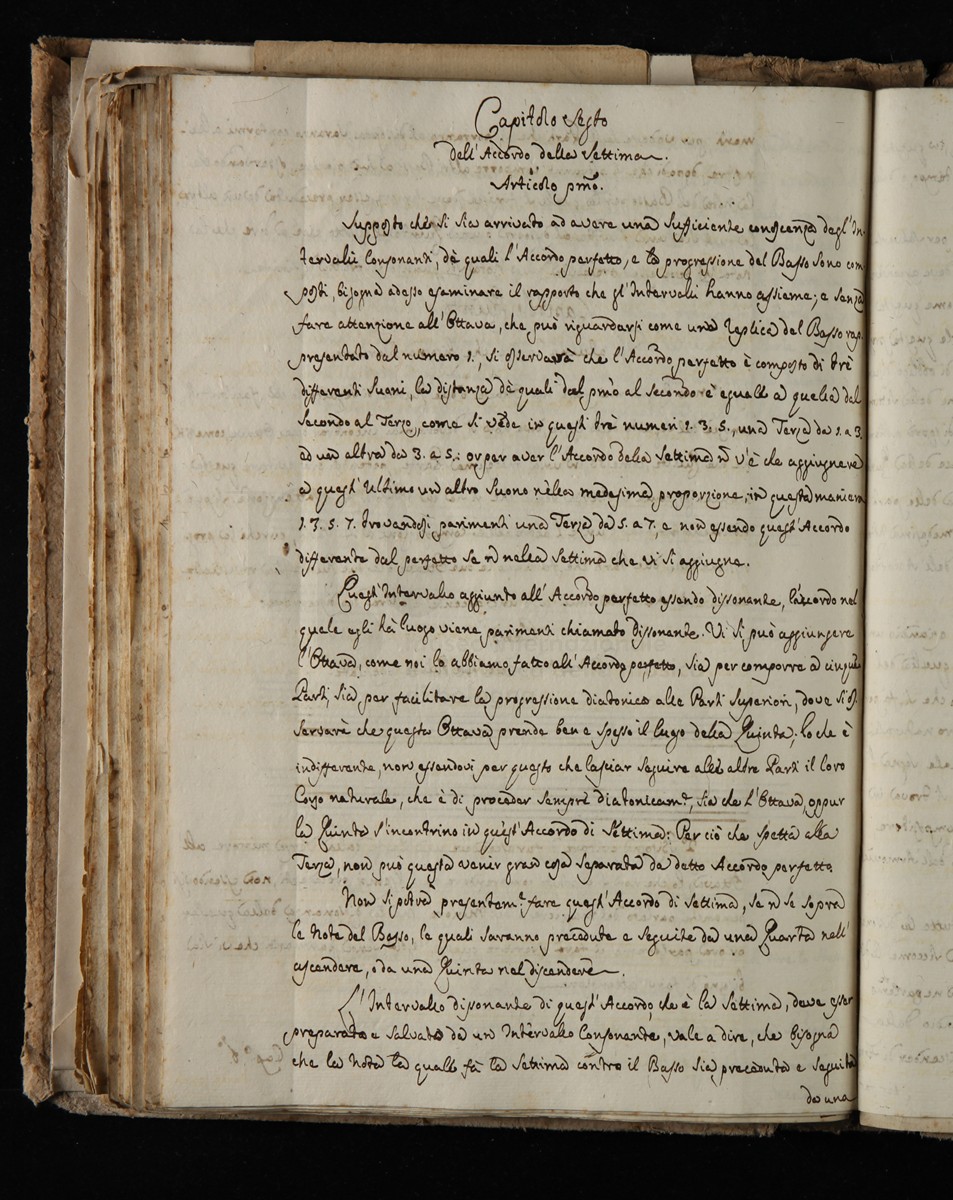 Capitolo Sesto
dell'Accordo della Settima.
Articolo pmo.
Supposto che si sia arrivato ad avere una sufficiente conoscenza degl'In-
tervalli Consonanti, de quali l'Accordo perfetto, e la progressione del Basso sono com
posti, bisogna adesso esaminare il rapporto che gl'Intervalli hanno assieme; e senza
fare attenzione all'Ottava, che può riguardarsi come una replica del Basso rap
presentato dal numero 1., si osservarà che l'Accordo perfetto è composto di trè
differenti Suoni, la distanza dè quali dal pmo al Secondo è eguale a quella del
Secondo al Terzo, come si vede in questi trè numeri 1. 3. 5., una Terza da 1. a 3.
ed un altra da 3. a 5.: or per aver l'Accordo della Settima ñ v'è che aggiugnere
a quest'Ultimo un altro Suono nella medesima proporzione, in questa maniera
1. 3. 5. 7. trovandosi parimenti una Terza da 5. a 7., e non essendo quest'Accordo
differente dal perfetto se ñ nella Settima che vi si aggiugne.
Quest'Intervallo aggiunto all'Accordo perfetto essendo dissonante, l'accordo nel
quale egli hà luogo viene parimenti chiamato dissonante. Vi si può aggiungere
l'Ottava, come noi lo abbiamo fatto all'Accordo perfetto, sia per comporre a cinque
Parti, sia per facilitare la progressione diatonica alle Parti Superiori, dove si os
servarà che questa Ottava prende bene spesso il luogo della Quinta; lo che è
indifferente, non essendovi per questo che lasciar seguire alle altre Parti il loro
Corso naturale, che è di proceder sempre diatonicamte, sia che l'Ottava, oppur
la Quinta s'incontrino in quest'Accordo di Settima: Per ciò che spetta alla
Terza, non può questa venir gran cosa separata da detto Accordo perfetto.
Non si potrà presentamte fare quest'Accordo di Settima, se ñ se sopra
le Note del Basso, le quali saranno precedute e seguite da una Quarta nell'
ascendere, o da una Quinta nel discendere.
L'Intervallo dissonante di quest'Accordo, che è la Settima, deve esser
preparato e salvato da un Intervallo Consonante, vale a dire, che bisogna
che la Nota la quale fà la Settima contro il Basso sia preceduta e seguita
da una